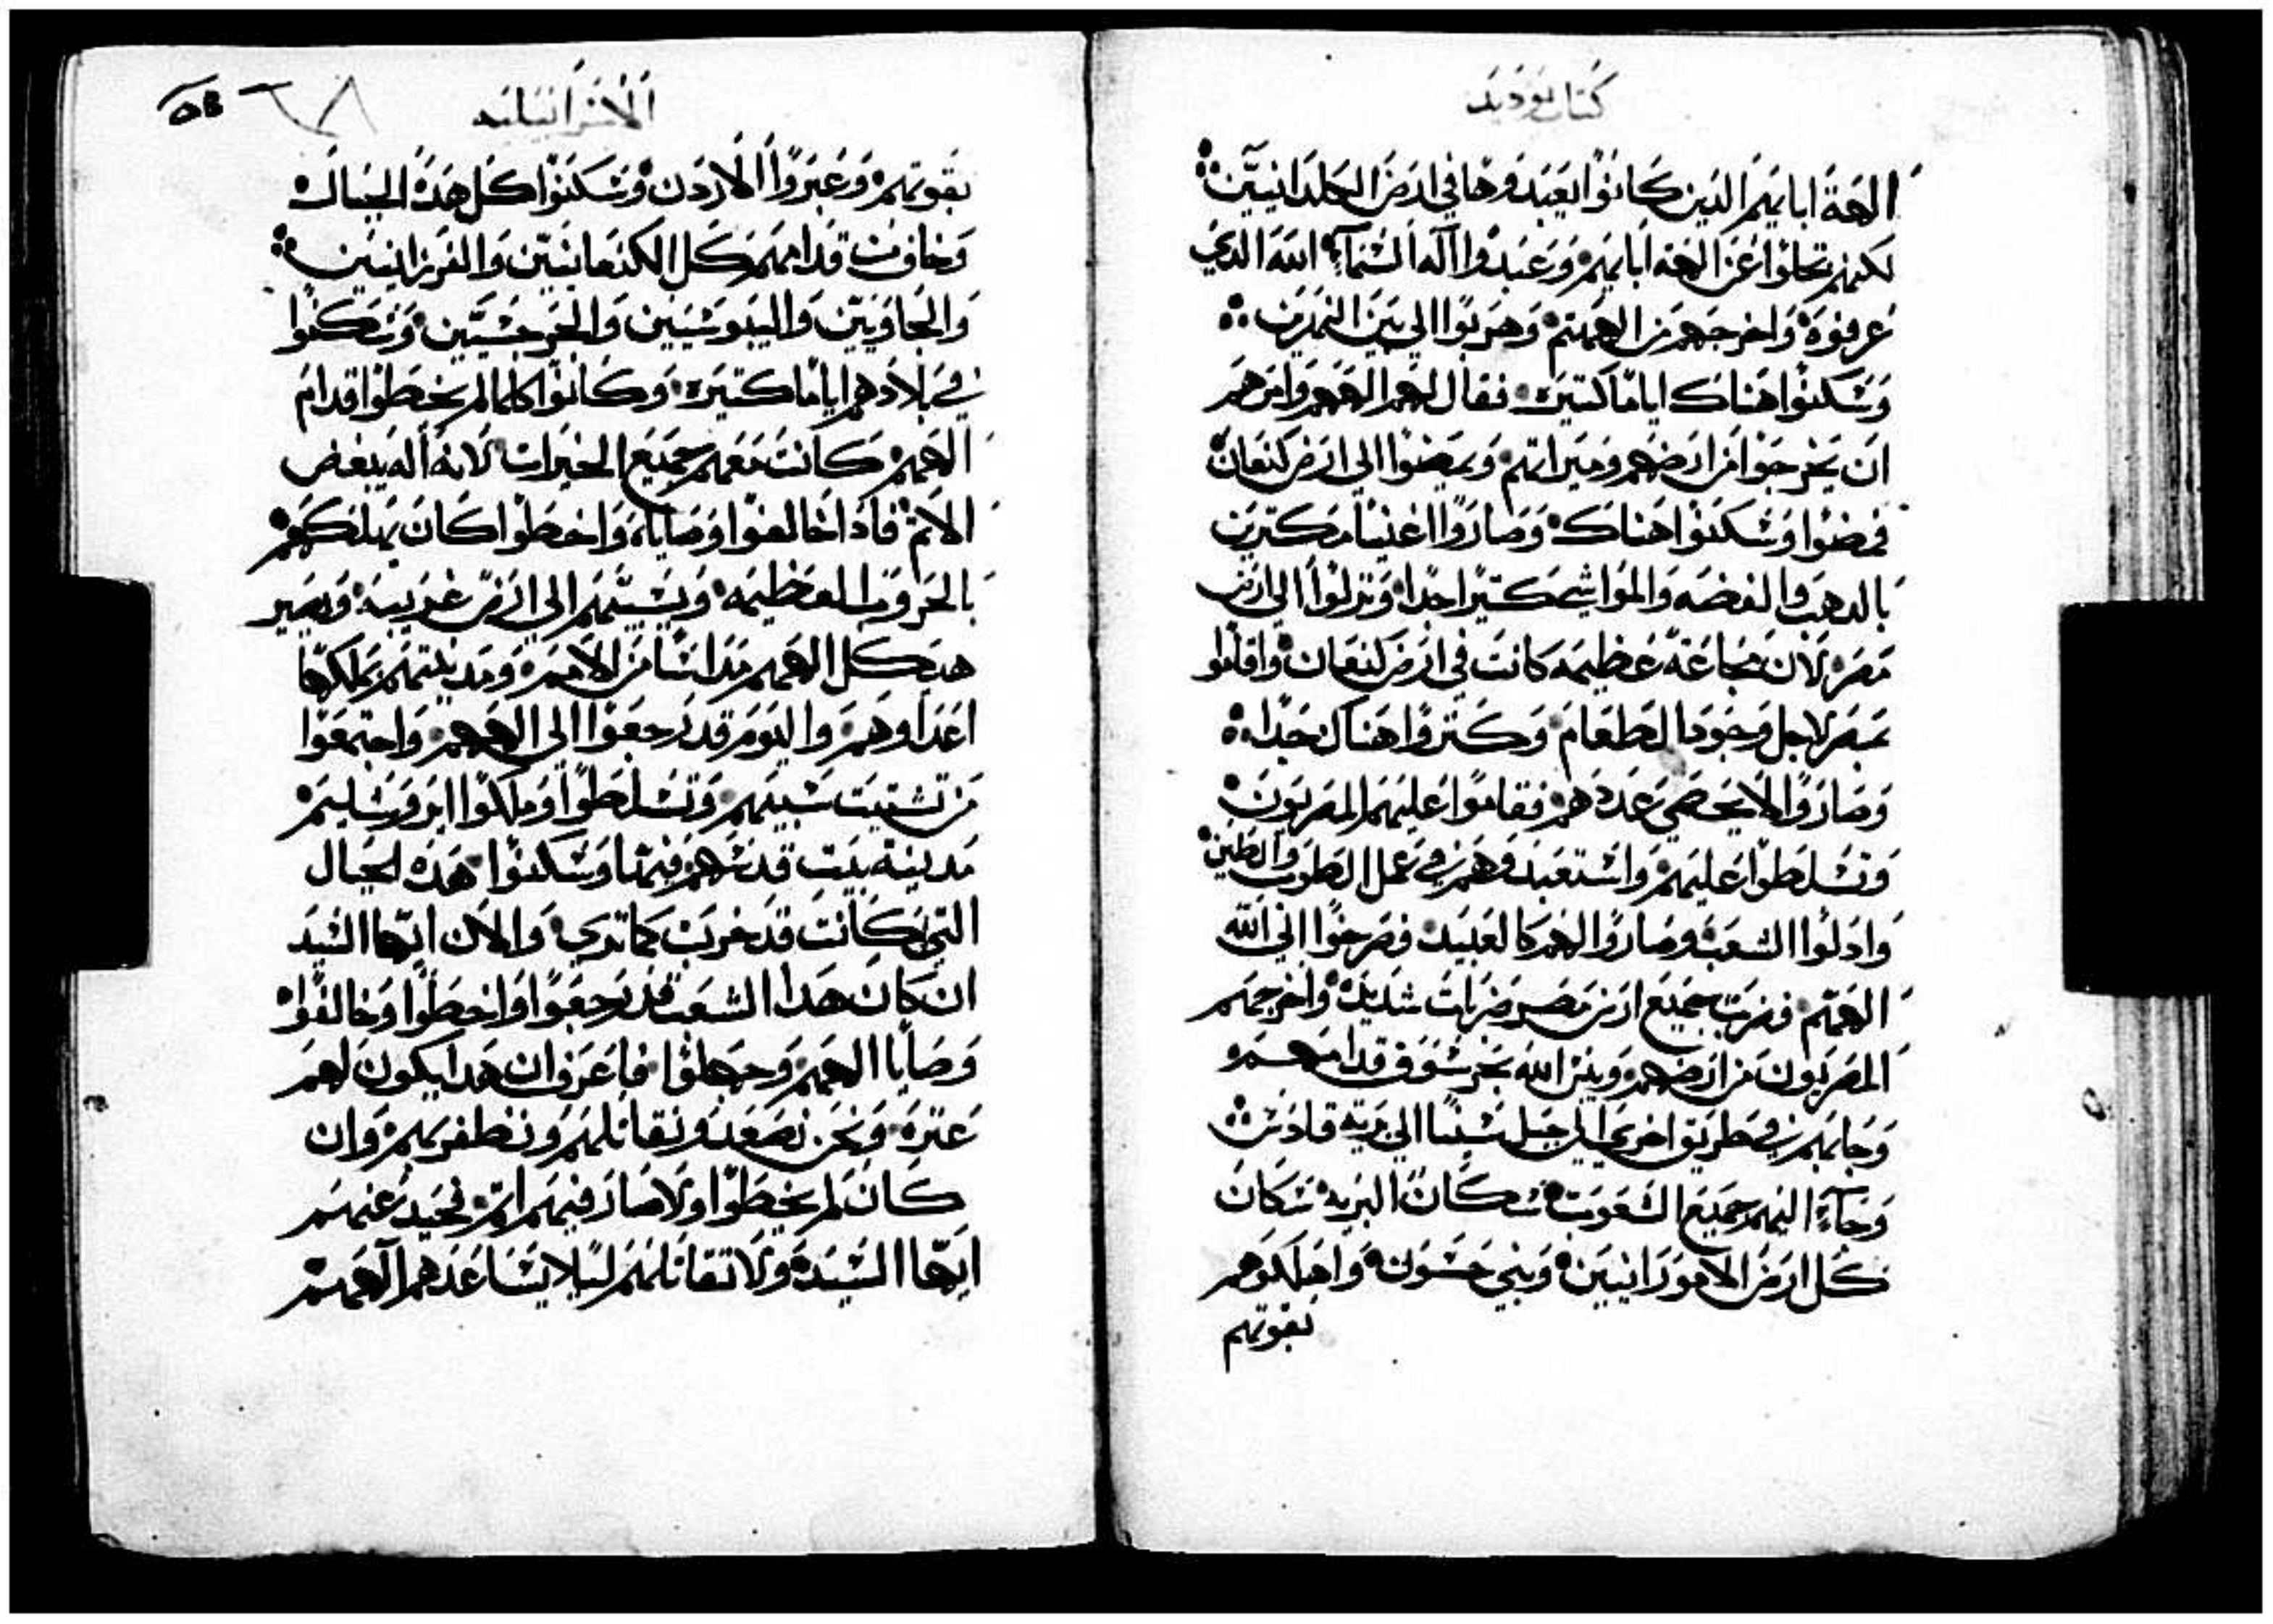 كتاب يوديد
الهة ابايهم الدين كانوا يعبدوها في ارض الكلدانيين
لكنهم تخلوا عن الهة ابايهم وعبدوا اله السماء الله الدي
عرفوه واخرجهم من الهمتهم وهربوا الي بين النهرين
وسكنوا هناك اياما كتيره فقال لهم الههم وامرهم
ان يخرجوا من ارضهم وميراتهم ويمضوا الي ارض كنعان
فمضوا وسكنوا هناك وصاروا اغنيا مكترين
بالدهب والفضه والمواشي كتيرا جدا ونزلوا الي ارض
مصر لان مجاعة عظيمه كانت في ارض كنعان واقاموا
بمصر لاجل وجود الطعام وكتروا هناك جدا
وصاروا لا يحصي عددهم فقاموا عليهم المصريون
وتسلطوا عليهم واستعبدوهم في عمل الطوب والطين
وادلوا الشعب وصاروا لهم كالعبيد فصرخوا الي الله
الههم فضرب جميع ارض مصر ضربات شديده واخرجهم
المصريون من ارضهم ويبس الله بحر سوف قدامهم
وجابهم في طريق اخري الي جبل سينا الي برية قادس
وجاء اليهم جميع الشعوب سكان البريه سكان
كل ارض الاموورانيين وبني حسون واهلكوهم
بقوتهم
الاسرانيليه
بقوتهم وعبروا الاردن وسكنوا كل هده الجبال
وخافت قدامهم كل الكنعانيين والفرزانيين
والحاويين واليبوسيين والجرجسيين وسكنوا
في بلادهم اياما كتيره وكانوا كلما لم يخطوا قدام
الههم كانت معهم جميع الخيرات لانه اله يبغض
الاتم فادا خالفوا وصاياه واخطوا كان يهلكهم
بالحروب العظيمه ويشتتهم الي ارض غريبه ويصير
هيكل الههم مداسا من الامم ومدينتهم يملكها
اعداوهم واليوم قد رجعوا الي الههم واجتمعوا
من تشتيت سبيهم وتسلطوا وملكوا ايروشليم
مدينة بيت قدسهم فيها وسكنوا هده الجبال
التي كانت قد خربت كما تري والان ايها السيد
ان كان هدا الشعب قد رجعوا واخطوا وخالفوا
وصايا الههم وجهلوا فاعرف ان هدا يكون لهم
عتره ونحن نصعد ونقاتلهم ونظفر بهم وان
كان لم يخطوا ولا صار فيهم اتم نحيد عنهم
ايها السيد ولا تقاتلهم ليلا يساعدهم الههم